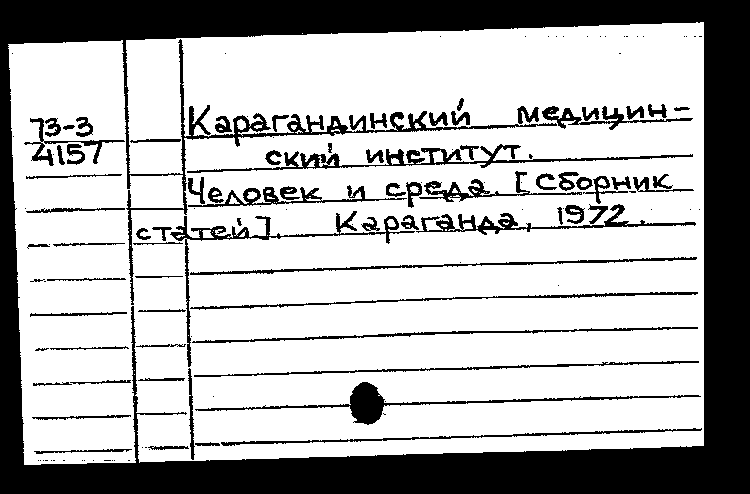 73-3
4157
Карагандинский медицин-
ский институт.
Человек и среда. [Сборник
статей]. Караганда, 1972.